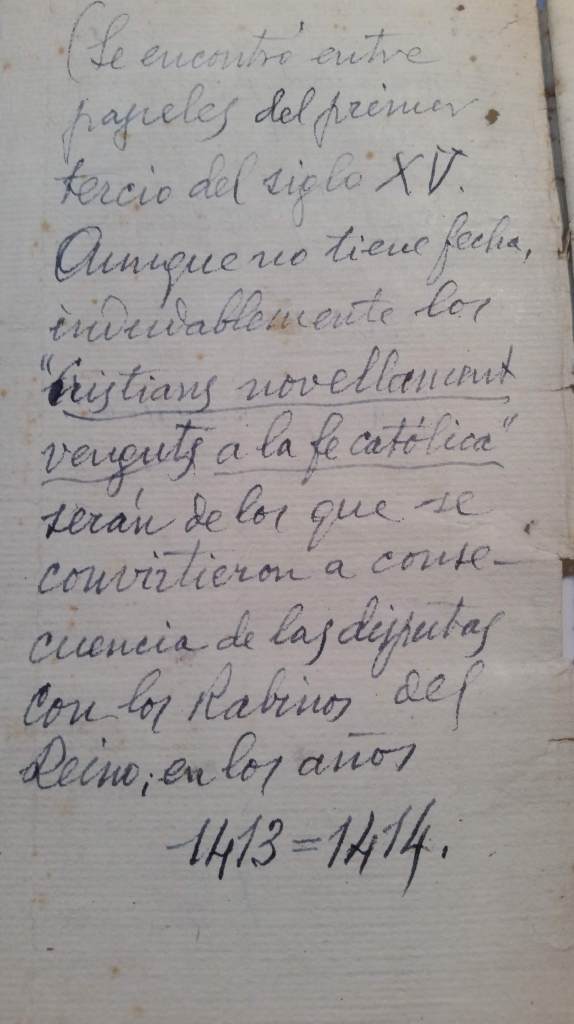 (Se encontró entre
papeles del primer
tercio del siglo XV.
Aunque no tiene fecha,
indudablemente los
"Cristians novellament
venguts a la fe católica"
serán de los que se
convirtieron a conse-
cuencia de las disputas
con los Rabinos del
Reino, en los años
1413=1414.